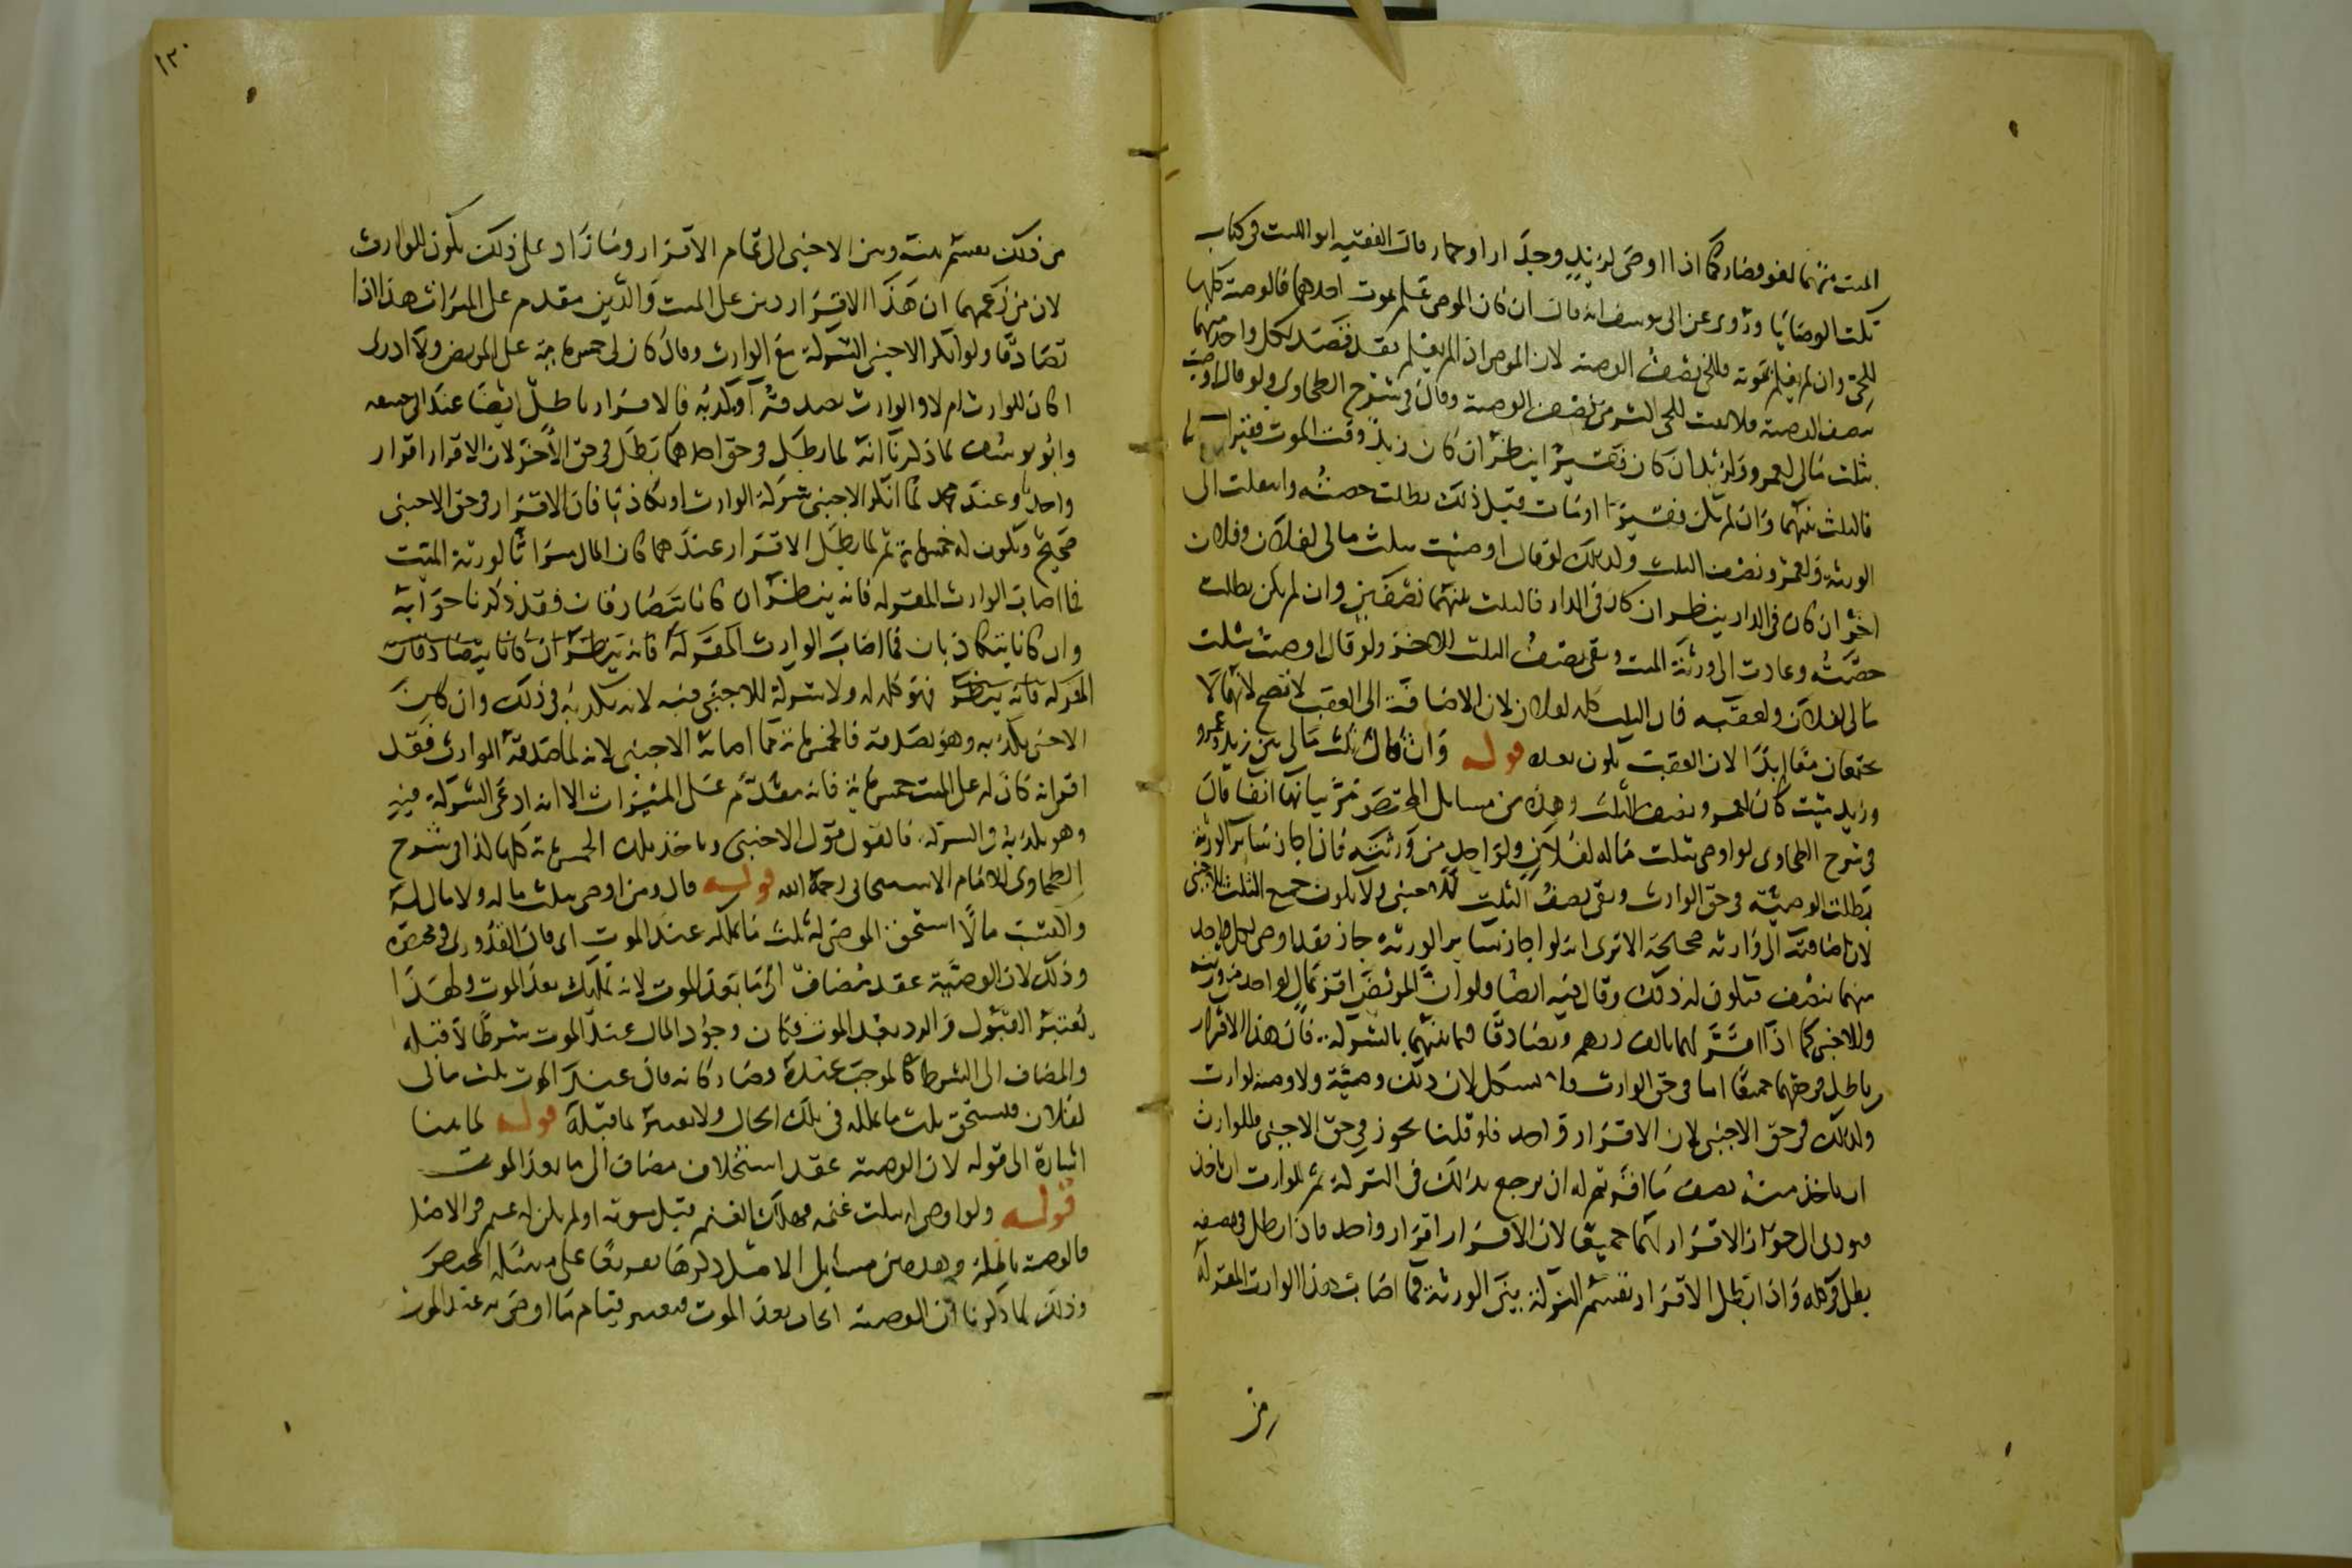 الميت منهما لغو فصار كما اذا اوصى لزيد وجدار او حمار قال الفقيه ابو الليث فى كتاب
نكت الوصايا وروى عن ابى يوسف انه قال ان كان الموصى علم بموت احدهما فالوصية كلها
للحى وان لم يعلم بموته فللحى نصف الوصية لان الموصى اذا لم يعلم فقد قصد لكل واحد منهما
نصف الوصية فلا يثبت للحى اكثر من نصف الوصية وقال فى شرح الطحاوى ولو قال اوصيت
بثلث مالى لعمرو ولزيد ان كان فقيرا ينظر ان كان زيد وقت الموت فقيرا
فالثلث بينهما وان لم يكن فقيرا او مات قبل ذلك بطلت حصته وانتقلت الى
الورثة ولعمرو نصف الثلث وكذلك لو قال اوصيت بثلث مالى لفلان وفلان
اخر ان كان فى الدار ينظر ان كان فى الدار فالثلث بينهما نصفين وان لم يكن بطلت
حصته وعادت الى ورثة الميت وبقى نصف الثلث للاخر ولو قال اوصيت بثلث
مالى لفلان ولعقبه فان الثلث كله لفلان لان الاضافة الى العقب لا تصح لانهما لا
يجتمعان معا ابدا لان العقب يكون بعده قوله وان قال ثلث مالى بين زيد وعمرو
وزيد ميت كان لعمرو نصف الثلث وهذه من مسايل المختصر مر بيانها انفا قال
فى شرح الطحاوى لو اوصى بثلث ماله لفلان ولواحد من ورثته فان اجاز سائر الورثة
بطلت الوصية فى حق الوارث وبقى نصف الثلث للاجنبى ولا يكون جميع الثلث للاجنبى
لان اضافته الى وارثه صحيحة الا ترى انه لو اجاز سائر الورثة جاز فقد اوصى لكل واحد
منهما بنصف فيكون له ذلك وقال فيه ايضا ولو ان المريض اقر بمال لواحد من ورثته
وللاجنبى كما اذا اقر لهما بالف درهم وتصادقا فيما بينهما بالشركة فان هذا الاقرار
باطل فى حقهما جميعا اما فى حق الوارث فلا يشكل لان ذلك وصية ولا وصية لوارث
وكذلك فى حق الاجنبى لان الاقرار واحد فلو قلنا يجوز فى حق الاجنبى فللوارث
ان ياخذ منه نصف ما اقر ثم له ان يرجع بذلك فى التركة ثم للوارث ان ياخذ
فيودى الى جواز الاقرار لهما جميعا لان الاقرار اقرار واحد فاذا بطل فى نصفه
بطل فى كله واذا بطل الاقرار تقسم التركة بين الورثة فما اصابت هذا الوارث المقر له
من
من ذلك يقسم بينه وبين الاجنبى الى تمام الاقرار وما زاد على ذلك يكون للوارث
لان من زعمهما ان هذا الاقرار دين على الميت والدين مقدم على الميراث هذا اذا
تصادقا ولو انكر الاجنبى الشركة مع الوارث وقال كان لى خمس مائة على المريض ولا ادرى
اكان للوارث ام لا والوارث يصدقه او يكذبه فالاقرار باطل ايضا عند ابى حنيفة
وابو يوسف لما ذكرنا انه لما بطل فى حق احدهما بطل فى حق الاخر لان الاقرار اقرار
واحد وعند محمد لما انكر الاجنبى شركة الوارث او تكاذبا فان الاقرار فى حق الاجنبى
صحيح ويكون له خمس مائة ثم لما بطل الاقرار عندهما كان المال ميراثا لورثة الميت
فما اصاب الوارث المقر له فانه ينظر ان كانا يتصادقان فقد ذكرنا جوابه
وان كانا يتكاذبان فما اصاب الوارث المقر له فانه ينظر ان كانا يتصادقان
المقر له فانه ينظر فهو كله له ولا شركة للاجنبى فيه لانه يكذبه فى ذلك وان كان
الاجنبى يكذبه وهو يصدقه فالخمس مائة مما اصابه الاجنبى لانه لما صدقه الوارث فقد
اقر انه كان له على الميت خمس مائة فانه مقدم على الميراث الا انه ادعى الشركة فيه
وهو يكذبه فى الشركة فالقول قول الاجنبى وياخذ تلك الخمس مائة كلها كذا فى شرح
الطحاوى للامام الاسبيجابى رحمه الله قوله قال ومن اوصى بثلث ماله ولا مال له
واكتسب مالا استحق الموصى له ثلث ما يملكه عند الموت اى قال القدورى فى مختصره
وذلك لان الوصية عقد مضاف الى ما بعد الموت لانه تمليك بعد الموت ولهذا
يعتبر القبول والرد بعد الموت فكان وجود المال عند الموت شرطا لا قبله
والمضاف الى الشرط كالموجب عنده وصار كانه قال عند الموت ثلث مالى
لفلان فيستحق ثلث ما يملكه فى تلك الحال ولا يعتبر ما قبله قوله لما بينا
اشارة الى قوله لان الوصية عقد استخلاف مضاف الى ما بعد الموت
قوله ولو اوصى له بثلث غنمه فهلك الغنم قبل موته او لم يكن له غنم فى الاصل
فالوصية باطلة وهذه من مسايل الاصل ذكرها تفريعا على مسئلة المختصر
وذلك لما ذكرنا ان الوصية ايجاب بعد الموت فيعتبر قيام ما اوصى به عند الموت
١٣٠